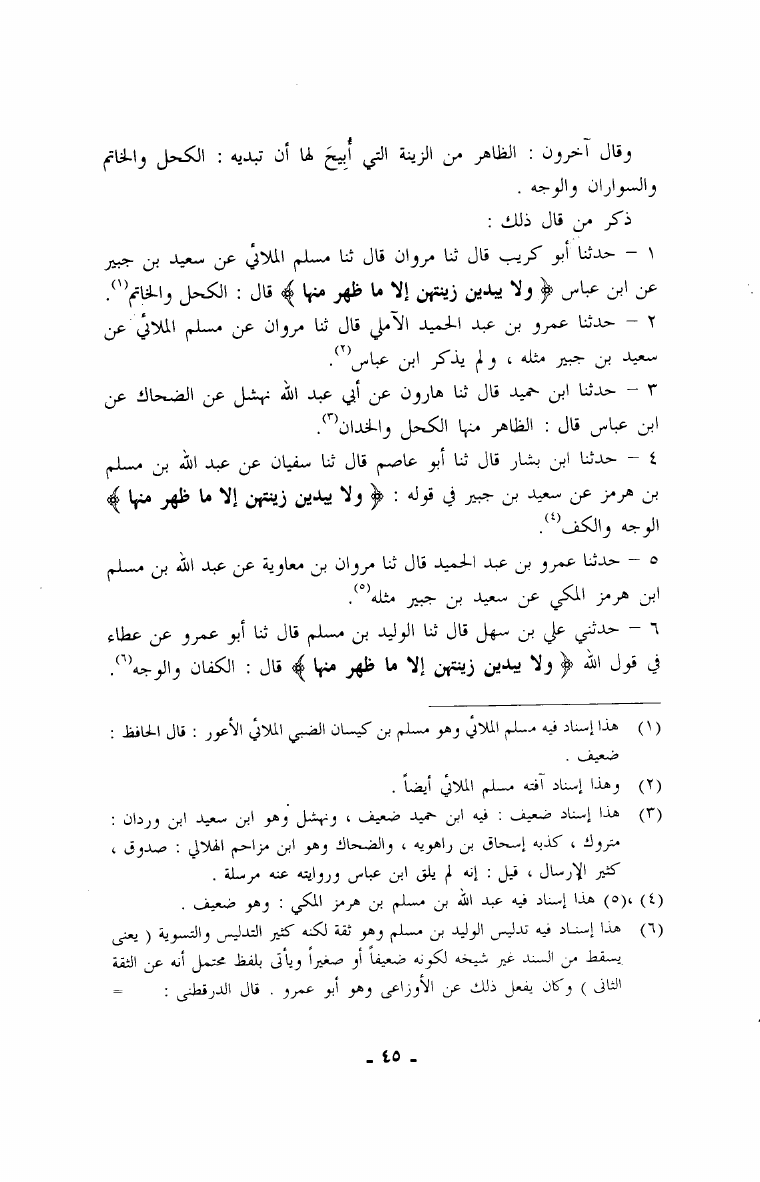 وقال آخرون : الظاهر من الزينة التي أُبِيحَ لها أن تبديه : الكحل والخاتم
والسواران والوجه .
ذكر من قال ذلك :
١ – حدثنا أبو كريب قال ثنا مروان قال ثنا مسلم الملائي عن سعيد بن جبير
عن ابن عباس ﴿ ولا يبدين زينتهن إلا ما ظهر منها ﴾ قال : الكحل والخاتم(١).
٢ – حدثنا عمرو بن عبد الحميد الآملي قال ثنا مروان عن مسلم الملائي عن
سعيد بن جبير مثله ، ولم يذكر ابن عباس(٢).
٣ – حدثنا ابن حميد قال ثنا هارون عن أبي عبد الله نهشل عن الضحاك عن
ابن عباس قال : الظاهر منها الكحل والخدان(٣).
٤ – حدثنا ابن بشار قال ثنا أبو عاصم قال ثنا سفيان عن عبد الله بن مسلم
بن هرمز عن سعيد بن جبير في قوله : ﴿ ولا يبدين زينتهن إلا ما ظهر منها ﴾
الوجه والكف(٤).
٥ – حدثنا عمرو بن عبد الحميد قال ثنا مروان بن معاوية عن عبد الله بن مسلم
ابن هرمز المكي عن سعيد بن جبير مثله(٥).
٦ – حدثني علي بن سهل قال ثنا الوليد بن مسلم قال ثنا أبو عمرو عن عطاء
في قول الله ﴿ ولا يبدين زينتهن إلا ما ظهر منها ﴾ قال : الكفان والوجه(٦).
(١) هذا إسناد فيه مسلم الملائي وهو مسلم بن كيسان الضبي الملائي الأعور : قال الحافظ :
ضعيف .
(٢) وهذا إسناد آفته مسلم الملائي أيضاً .
(٣) هذا إسناد ضعيف : فيه ابن حميد ضعيف ، ونهشل وهو ابن سعيد ابن وردان :
متروك ، كذبه إسحاق بن راهويه ، والضحاك وهو ابن مزاحم الهلالي : صدوق ،
كثير الإرسال ، قيل : إنه لم يلق ابن عباس وروايته عنه مرسلة .
(٤) ،(٥) هذا إسناد فيه عبد الله بن مسلم بن هرمز المكي : وهو ضعيف .
(٦) هذا إسناد فيه تدليس الوليد بن مسلم وهو ثقة لكنه كثير التدليس والتسوية ( يعنى
يسقط من السند غير شيخه لكونه ضعيفاً أو صغيراً ويأتى بلفظ محتمل أنه عن الثقة
الثانى ) وكان يفعل ذلك عن الأوزاعى وهو أبو عمرو . قال الدرقطنى : =
ـ ٤٥ ـ